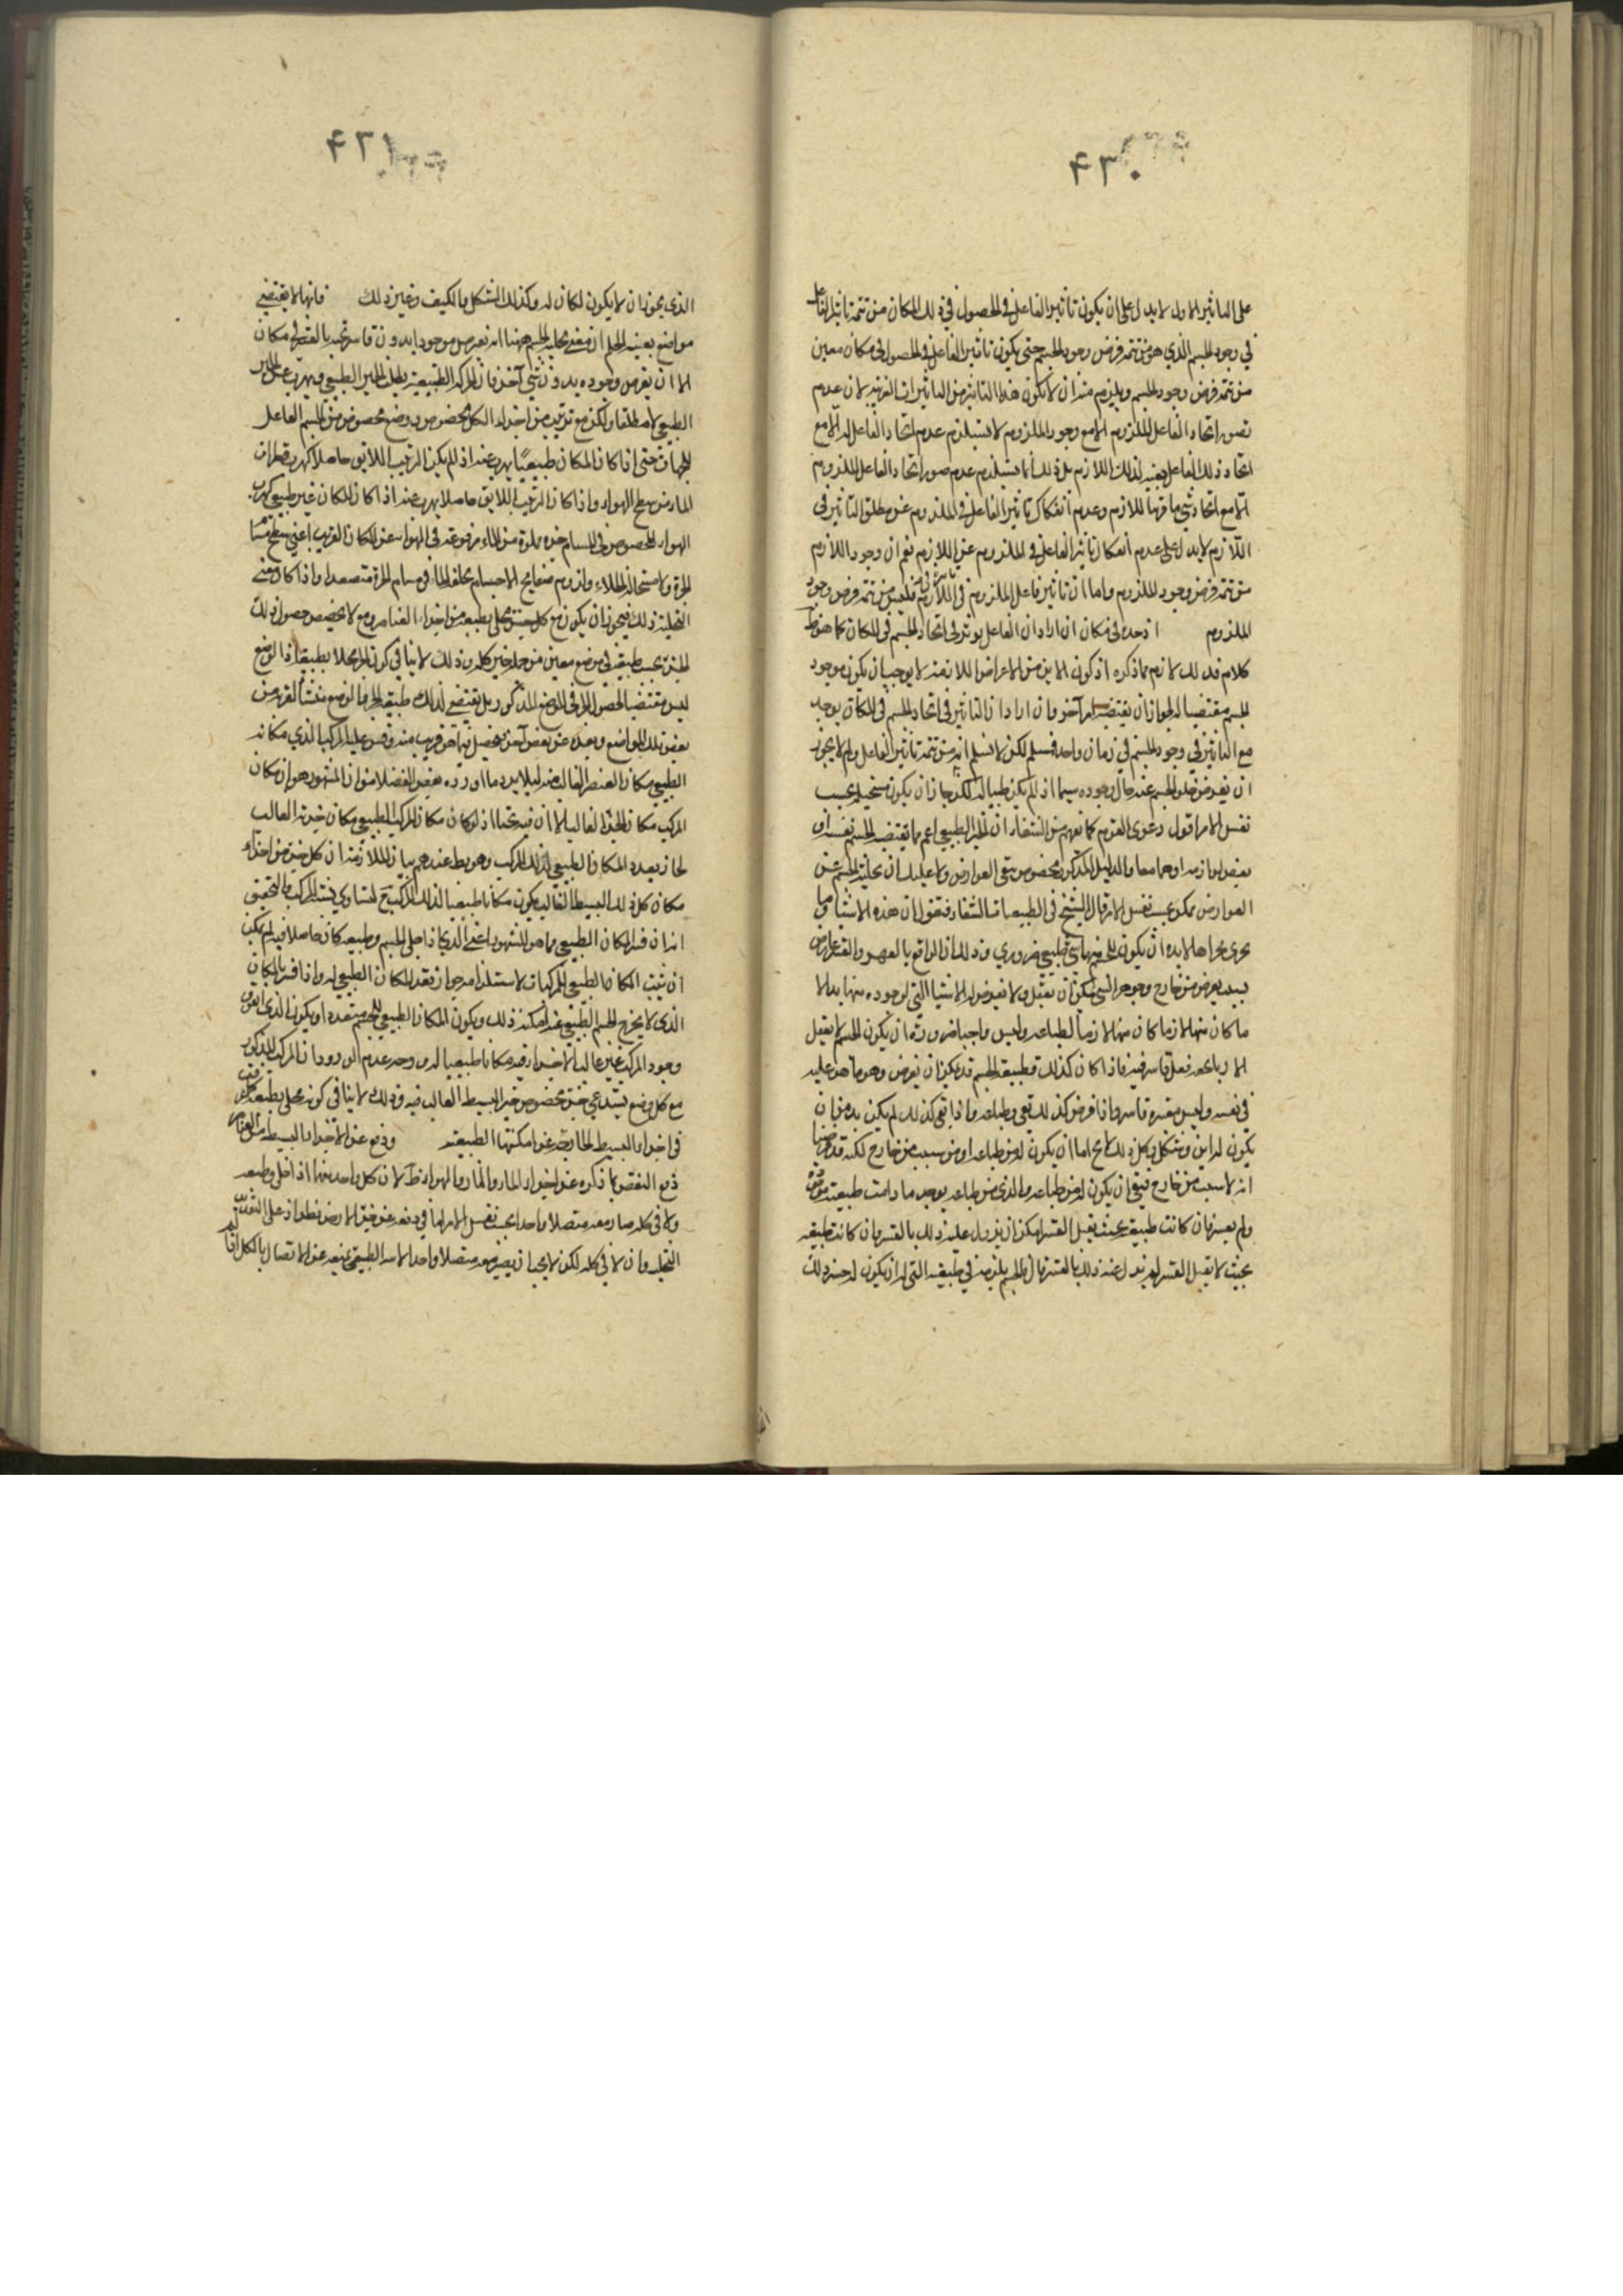 ٤٣٠
على التاثير الاول لا يدل على ان يكون تاثير الفاعل في الحصول في ذلك المكان من تتمة تاثير الفاعل
في وجود الجسم الذي هو من تتمة فرض وجود الجسم حتى يكون تاثير الفاعل في الحصول في مكان معين
من تتمة فرض وجود الجسم ويلزم منه ان لا يكون هذا التاثير من التاثيرات الغريبة لان عدم
تصور اتحاد الفاعل للملزوم الا مع وجود الملزوم لا يستلزم عدم اتحاد الفاعل له الا مع
اتحاد ذلك الفاعل بعينه لذلك اللازم بل ذلك انما يستلزم عدم صور اتحاد الفاعل للملزوم
الا مع اتحاد شي ما قرنا للازم وعدم انفكاك تاثير الفاعل في الملزوم عن مطلق التاثير في
اللازم لا يدل على عدم انفكاك تاثير الفاعل في الملزوم عن اللازم نعم ان وجود اللازم
من تتمة فرض وجود الملزوم واما ان تاثير فاعل الملزوم في اللازم فليس من تتمة فرض وجود
الملزوم اذ حده في مكان ان اراد ان الفاعل يوثر في اتحاد الجسم في المكان كما هو ظ
كلامه فذلك لازم مما ذكره اذ كون الاين من الاعراض اللازمة لا يوجب ان يكون موجود
الجسم مقتضيا له لجواز ان يقتضيه امر آخر وان اراد ان التاثير في اتحاد الجسم في المكان يوجد
مع التاثير في وجود الجسم في زمان واحد فمسلم لكن لا نسلم انه من تتمة تاثير الفاعل ولم لا يجوز
ان يفرض خلو الجسم عنه حال وجوده سيما اذا لم يكن طبيا له لكن جاز ان يكون مستحيلا بحسب
نفس الامر اقول دعوى القوم كما يفهم من الشفاء ان الحيز الطبيعي اعم مما يقتضيه الجسم نفسه او
بعض لوازمه او هما معا والدليل المذكور مخصوص بنفي العوارض ولا عليك ان تخلية الجسم عن
العوارض ممكن بحسب نفس الامر قال الشيخ في الطبيعيات الشفاء فنقول ان هذه الاشياء وما
يجري مجراها لابد ان يكون للجسم منها شي طبيعي ضروري وذلك ان الواقع بالقهر والقسر عارض
بسبب يعرض من خارج وجوهر الشي يمكن ان يعقل ولا يعرض له الاشيا التي لوجوده منها بدا الا
ما كان منها لازما كان منها لازما لطباعه وليس واجبا ضرورة ان يكون الجسم لا يعقل
الا وباعه فعل قاسر فيه فاذا كان كذلك فطبيعة الجسم قد يمكن ان يفرض وهو ما هو عليه
في نفسه وليس يقسره قاسر واذا فرض كذلك بقي وطباعه واذا بقي كذلك لم يكن بد من ان
يكون له اين وشكل وكل ذلك لا يخ اما ان يكون له من طباعه او من سبب من خارج لكنه قد فرضنا
انه لا سبب من خارج فبقي ان يكون له من طباعه والذي من طباعه يوجد ما دامت طبيعته موجودة
ولم يقسر فان كانت طبيعة بحيث يقبل القسر امكن ان يزول عليه ذلك بالقسر وان كانت طبيعته
بحيث لا يقبل القسر لم يزل عنه ذلك بالقسر قال والجسم يلزمه في طبيعته التي له ان يكون له حيز وذلك
٤٣١
الذي يجوز ان لا يكون لمكان له وكذلك الشكل والكيف وغير ذلك فانها لا يقتضي
مواضع بعينه اعلم ان معنى تخلية الجسم ههنا انه يفرض موجودا بدون قاسر تجبره بالقسر في مكان
الا ان يفرض وجوده بدون شي آخر فان الحركة الطبيعية يطلب الحيز الطبيعي ويهرب عن الحيز
الطبيعي لا مطلقا ولكن مع ترتيب من اجزاء الكل مخصوص ووضع مخصوص من الجسم الفاعل
للجهات حتى اذا كان المكان طبيعيا يهرب عنه اذا لم يكن الترتيب اللايق حاصلا كهرب قطرات
الماء من سطح الهواء واذا كان الترتيب اللايق حاصلا يهرب عنه اذا كان المكان غير طبيعي كهرب
الهواء المحصور في اجسام خزه مملوة من الماء مرفوعة في الهواء عن المكان القريب اعني سطح مسا
الجرة ولاستحالة الخلاء ولزوم صفايح الاجسام يخلف الماء في مسام الجرة متصعدا واذا كان معنى
التخلية ذلك فيجوز ان يكون مع كل جسم مخلى بطبعه من اجزاء العناصر وضع لا مخصص حصول ذلك
الجزء بحسب طبيعته في موضع معين من جملة حيز كله وذلك لا ينافي كون الجزء مخلا بطبيعته اذ الوضع
ليس مقتضيا لحصول الجزء في الموضع المذكور بل يقتضي لذلك طبيعة الجزء والوضع منشأ القرب من
بعض تلك المواضع وبعده عن بعض آخر فيحصل فيما هو قريب منه وقس عليه المركب الذي مكانه
الطبيعي مكان العنصر الغالب عنه ليلا يرد ما اورده بعض الفضلاء من ان المشهور هو ان مكان
المركب مكان الجزء الغالب الا ان فيه بحثا اذ لو كان مكان المركب الطبيعي مكان جزئه الغالب
لجاز تعدد المكان الطبيعي لذلك المركب وهو بط عندهم بيان الملازمة ان كل جزء من اجزاء
مكان كل ذلك البسيط الغالب يكون مكانا طبيعيا لذلك المركب ح لتساوي نسبة المركب والتحقيق
انه ان فسر المكان الطبيعي بما هو المشهور اعني الذي اذا خلى الجسم وطبيعه كان حاصلا فيه لم يمكن
ان يثبت المكان الطبيعي للمركبات لاستلزامه جواز تعدد المكان الطبيعي له واذا فسر بالمكان
الذي لا يخرج الجسم الطبيعي عنه امكنه ذلك ويكون المكان الطبيعي للجسم متعدد او يكون الذي اتفق
وجود المركب غير غالب الاجزاء فيه مكانا طبيعيا له ووجه عدم الورود ان المركب المذكور
مع كل وضع يستدعي جزء مخصوص من حيز البسيط الغالب فيه وذلك لا ينافي كونه مخلى بطبعه
في اجزاء البسيط الخارجة عن امكنتها الطبيعية ودفع عن الاجزاء البسيط
دفع النقض بما ذكره عن اجزاء الماء والنار والهواء ظ لان كل واحد منها اذا خلى وطبعه
ولاقى كله صار معه متصلا واحدا بحسب نفس الامر اما في دفعه عن جزء الارض نظر اذ على
التخلية وان لاقى كله لكن لا يجب ان يصير معه متصلا واحدا لان الطبيعي يمنعه عن الاتصال بالكل